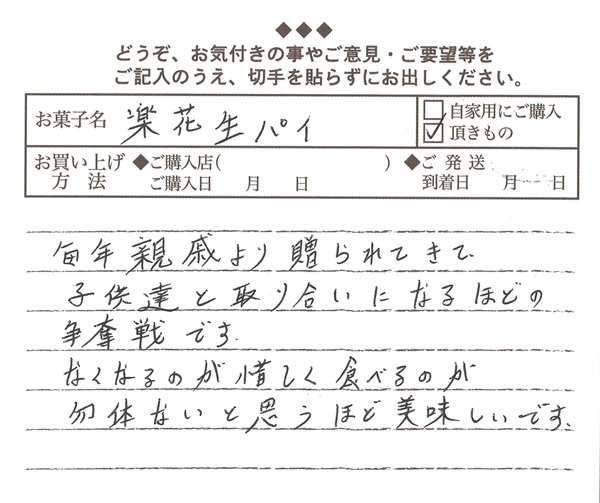 ◆◆◆
どうぞ、お気付きの事やご意見・ご要望等を
ご記入のうえ、切手を貼らずにお出しください。
お菓子名 楽花生パイ □自家用にご購入
☑頂きもの
お買い上げ ◆ご購入店( ) ◆ご発送
方法 ご購入日 月 日 到着日 月 日
毎年親戚より贈られてきて
子供達と取り合いになるほどの
争奪戦です.
なくなるのが惜しく食べるのが
勿体ないと思うほど美味しいです.